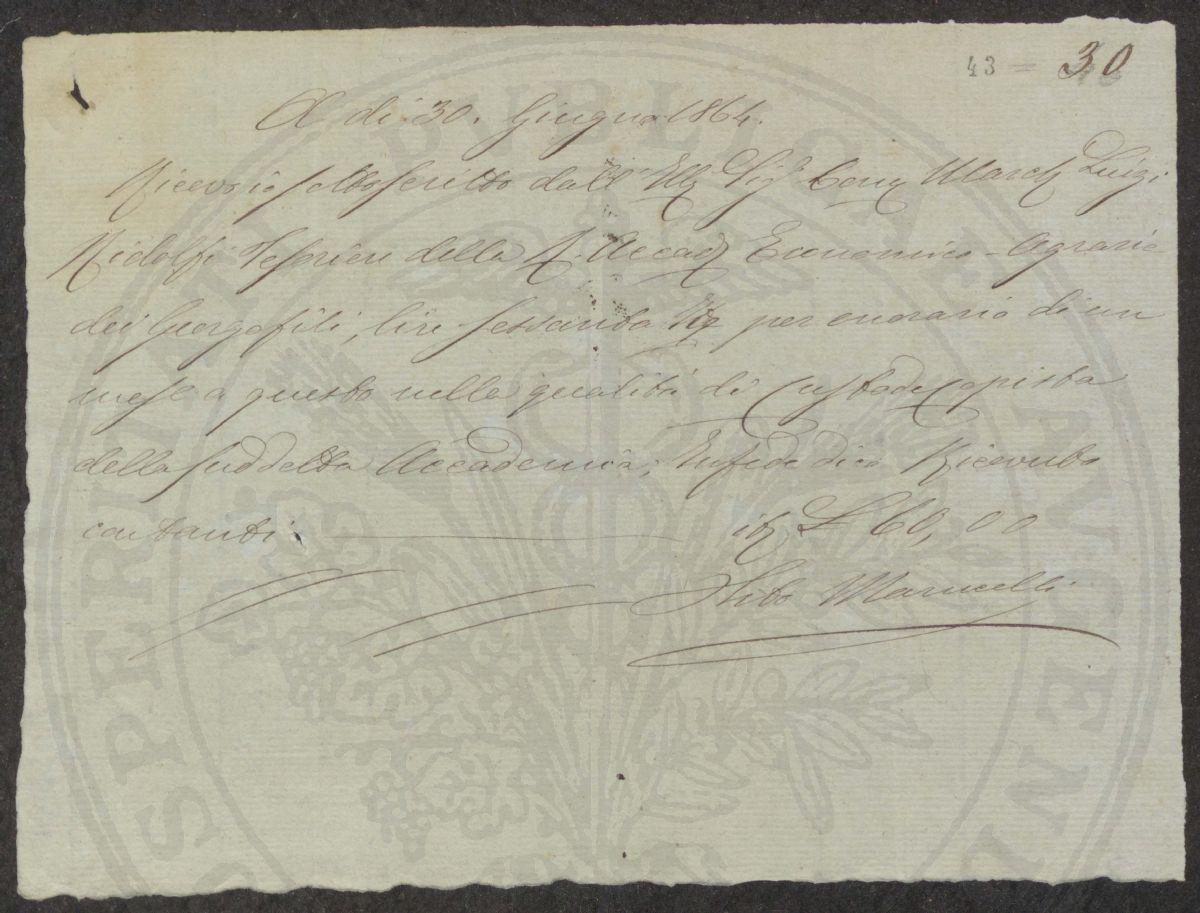 43 = 30
A di 30. Giugno 1864.
Ricevo io sottoscritto dall' Ill Sigr Marchs Luigi
Ridolfi Tesoriere della R. Accad Economico-Agraria
dei Georgofili, lire sessanta per onorario di un
mese a questo nella qualità di Custode Copista
della suddetta Accademia; In fede dico Ricevuto
contanti it L 60,00
Tito Marucelli
PROSPERITATI PUBLICAE AUGENDAE